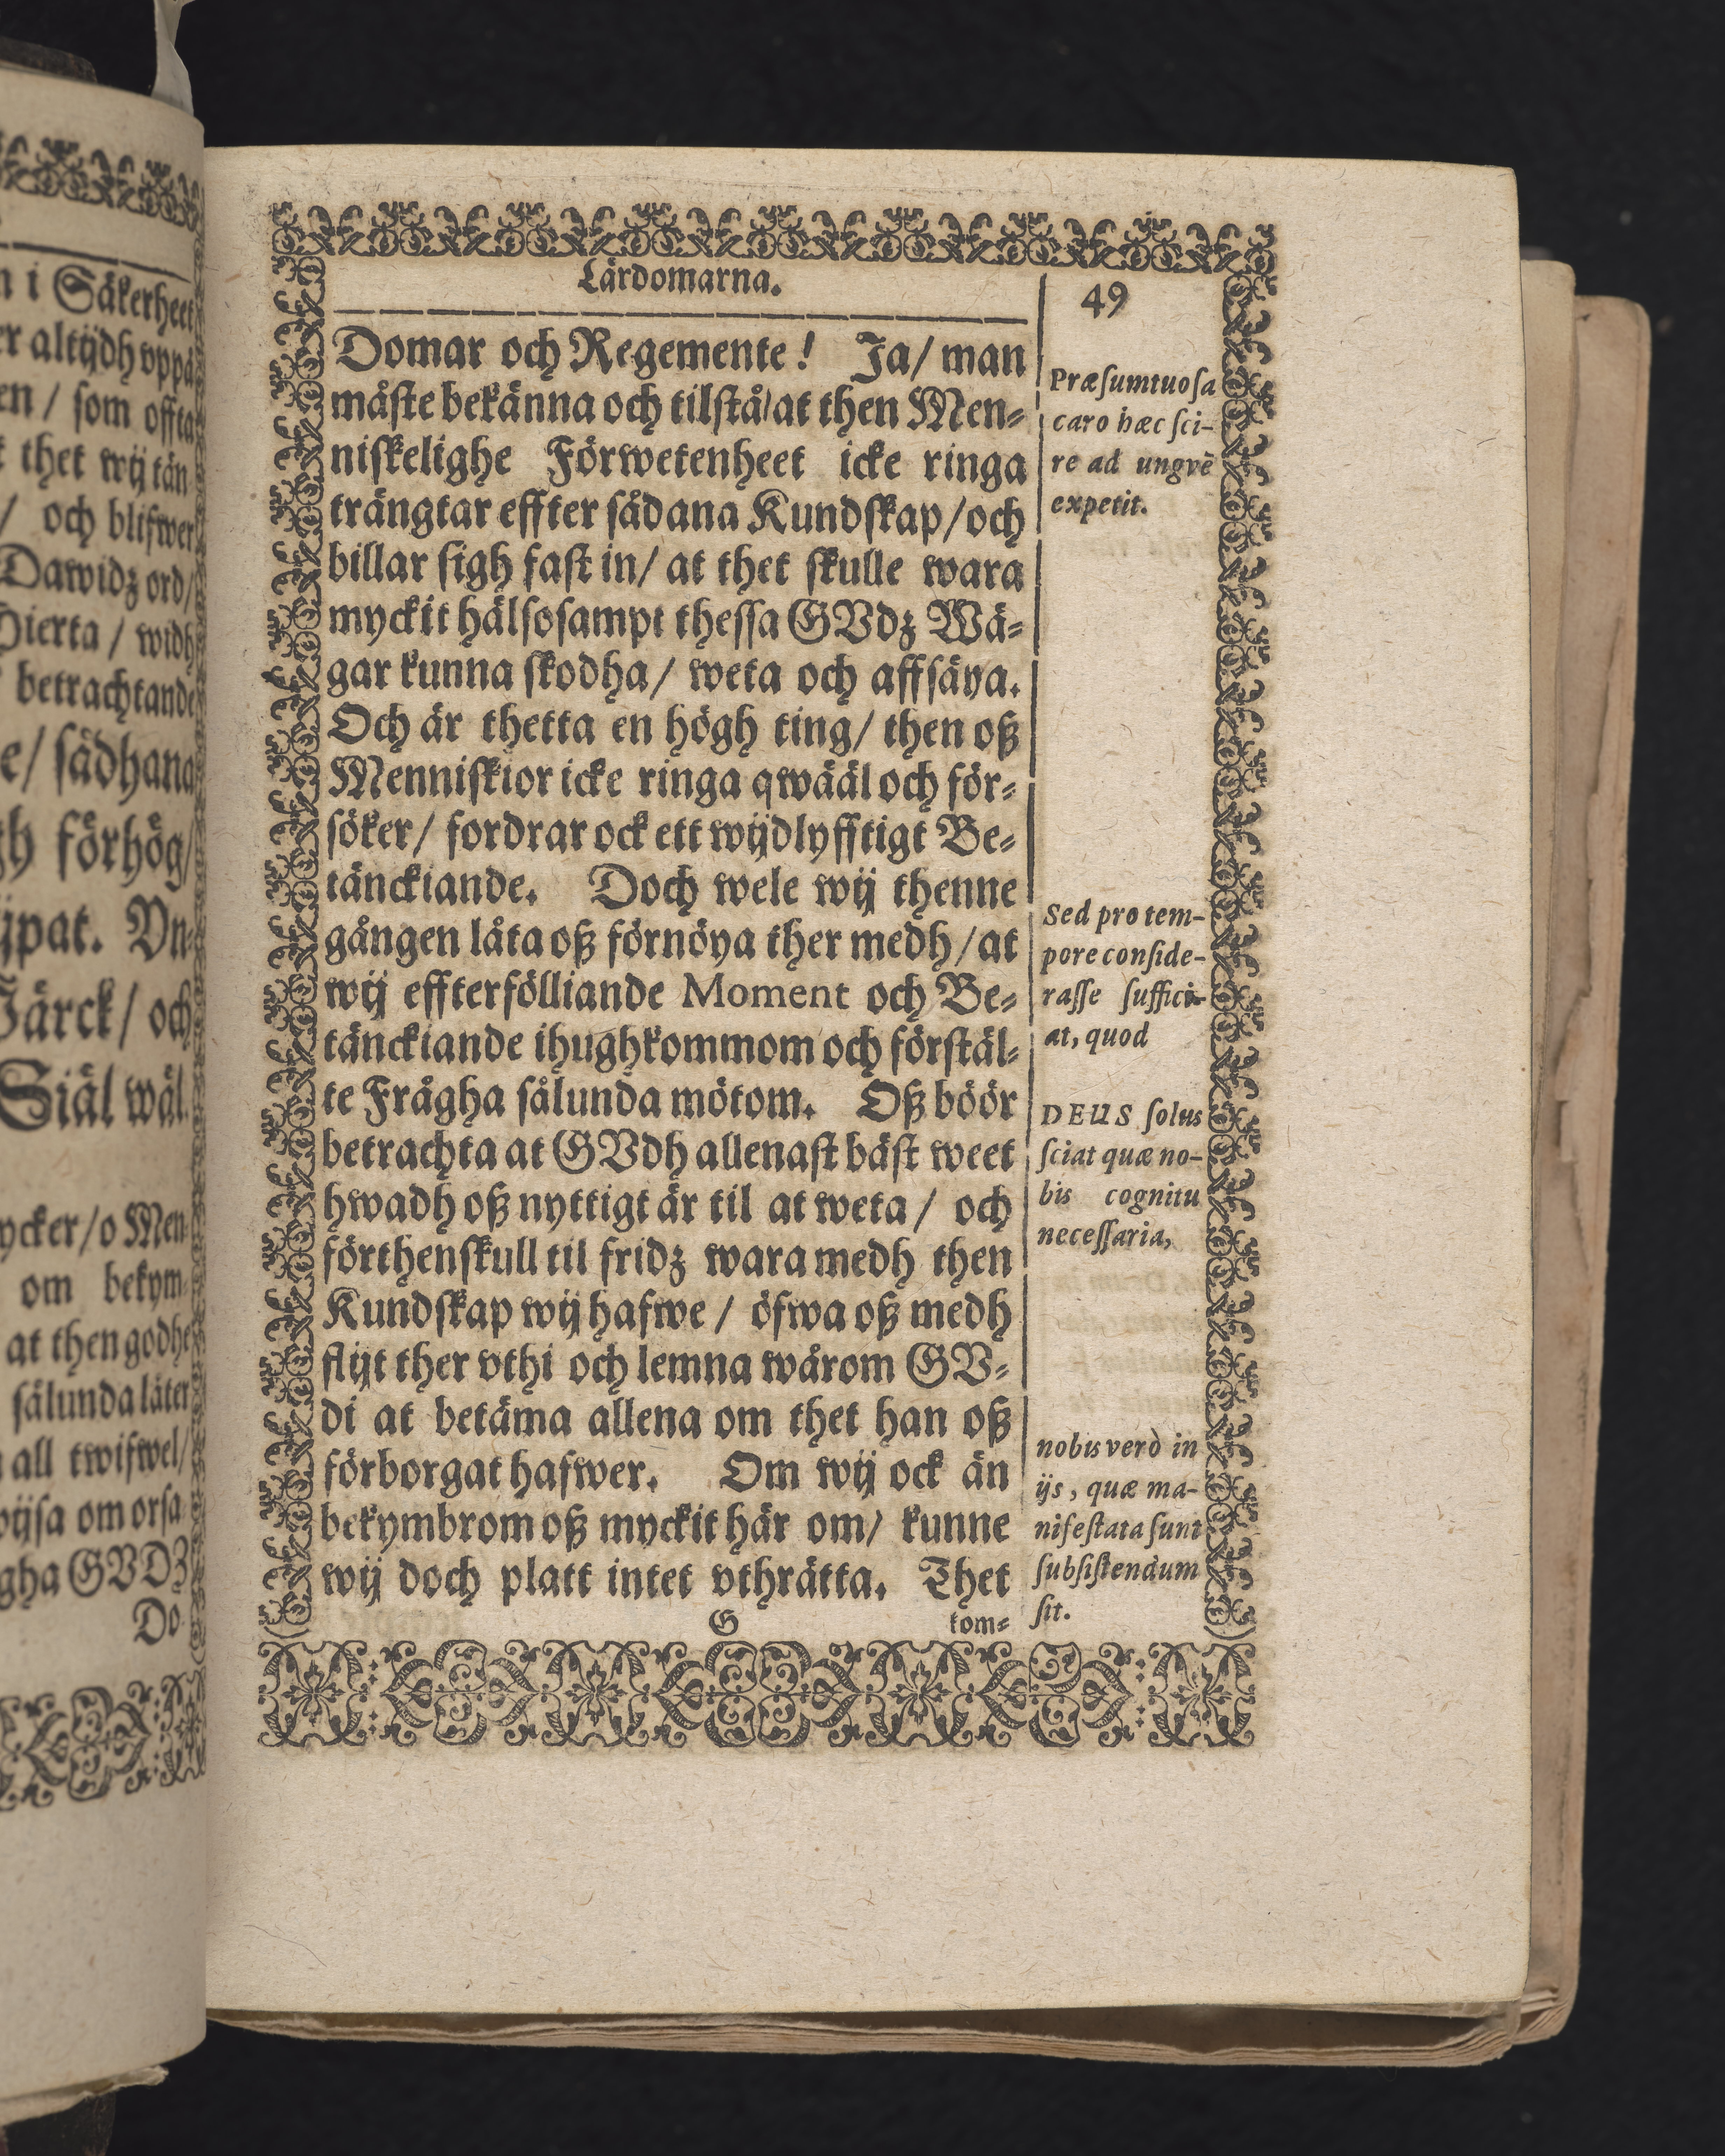 Lärdomarna.
49
Domar och Regemente! Ja/ man
måste bekänna och tilstå/at then Men⸗
niskelighe Förwetenheet icke ringa
trängtar effter sådana Kundskap/och
billar sigh fast in/ at thet skulle wara
myckit hälsosampt thessa GVdz Wä⸗
gar kunna skodha/ weta och affsäya.
Och är thetta en högh ting/ then oß
Menniskior icke ringa qwääl och för⸗
söker/ fordrar ock ett wijdlyfftigt Be⸗
tänckiande. Doch wele wij thenne
gången låta oß förnöya ther medh/at
wij effterfölliande Moment och Be⸗
tänckiande ihughkommom och förstäl⸗
te Frågha sålunda mötom. Oß böör
betrachta at GVdh allenast bäst weet
hwadh oß nyttigt är til at weta/ och
förthenskull til fridz wara medh then
Kundskap wij hafwe/ öfwa oß medh
flijt ther vthi och lemna wårom GV⸗
di at betäma allena om thet han oß
förborgat hafwer. Om wij ock än
bekymbrom oß myckit här om/ kunne
wij doch platt intet vthrätta. Thet
G
kom⸗
Præſumtuoſa
caro hæc ſci-
re ad ungvẽ
expetit.
Sed pro tem-
pore conſide-
raſſe ſuffici-
at, quod
DEUS ſolus
ſciat quæ no-
bis cognitu
neceſſaria,
nobis verò in
ijs, quæ ma-
nifeſtata ſunt
ſubſiſtendum
ſit.
n i Säkerheet
er altijdh vppå
en/ som offta
t thet wij tän
/ och blifwer
Dawidz ord/
Hierta/ widh
betrachtande
e/ sådhana
gh förhög/
ijpat. Vn⸗
Järck/ och
Siäl wäl.
ycker/o Men
om bekym⸗
at then godhe
sålunda låter
all twifwel/
wijsa om orsa
gha GVDZ
Do⸗